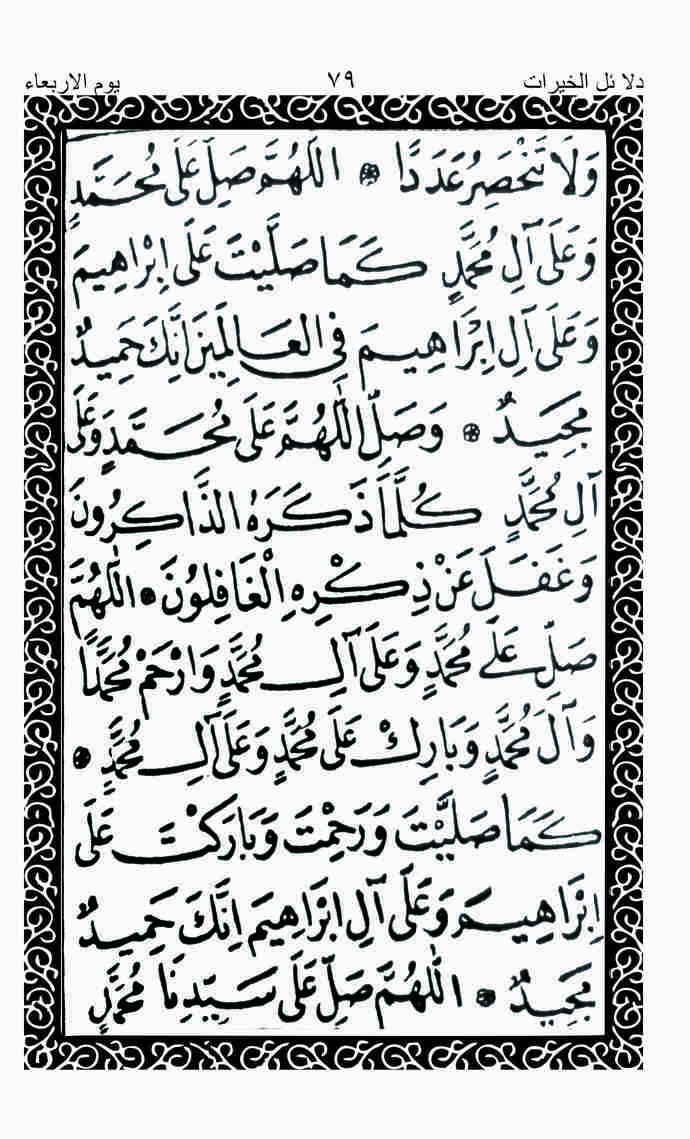 دلائل الخيرات ٧٩ يوم الاربعاء
وَلَا تَنْحَصِرُ عَدَدًا ۞ اللَّهُمَّ صَلِّ عَلَى مُحَمَّدٍ
وَعَلَى آلِ مُحَمَّدٍ كَمَا صَلَّيْتَ عَلَى اِبْرَاهِيمَ
وَعَلَى آلِ اِبْرَاهِيمَ فِي العَالَمِينَ اِنَّكَ حَمِيدٌ
مَجِيدٌ ۞ وَصَلِّ اللَّهُمَّ عَلَى مُحَمَّدٍ وَعَلَى
آلِ مُحَمَّدٍ كُلَّمَا ذَكَرَهُ الذَّاكِرُونَ
وَغَفَلَ عَنْ ذِكْرِهِ الْغَافِلُونَ ۞ اللَّهُمَّ
صَلِّ عَلَى مُحَمَّدٍ وَعَلَى آلِ مُحَمَّدٍ وَارْحَمْ مُحَمَّدًا
وَآلَ مُحَمَّدٍ وَبَارِكْ عَلَى مُحَمَّدٍ وَعَلَى آلِ مُحَمَّدٍ ۞
كَمَا صَلَّيْتَ وَرَحِمْتَ وَبَارَكْتَ عَلَى
اِبْرَاهِيمَ وَعَلَى آلِ اِبْرَاهِيمَ اِنَّكَ حَمِيدٌ
مَجِيدٌ ۞ اللَّهُمَّ صَلِّ عَلَى سَيِّدِنَا مُحَمَّدٍ